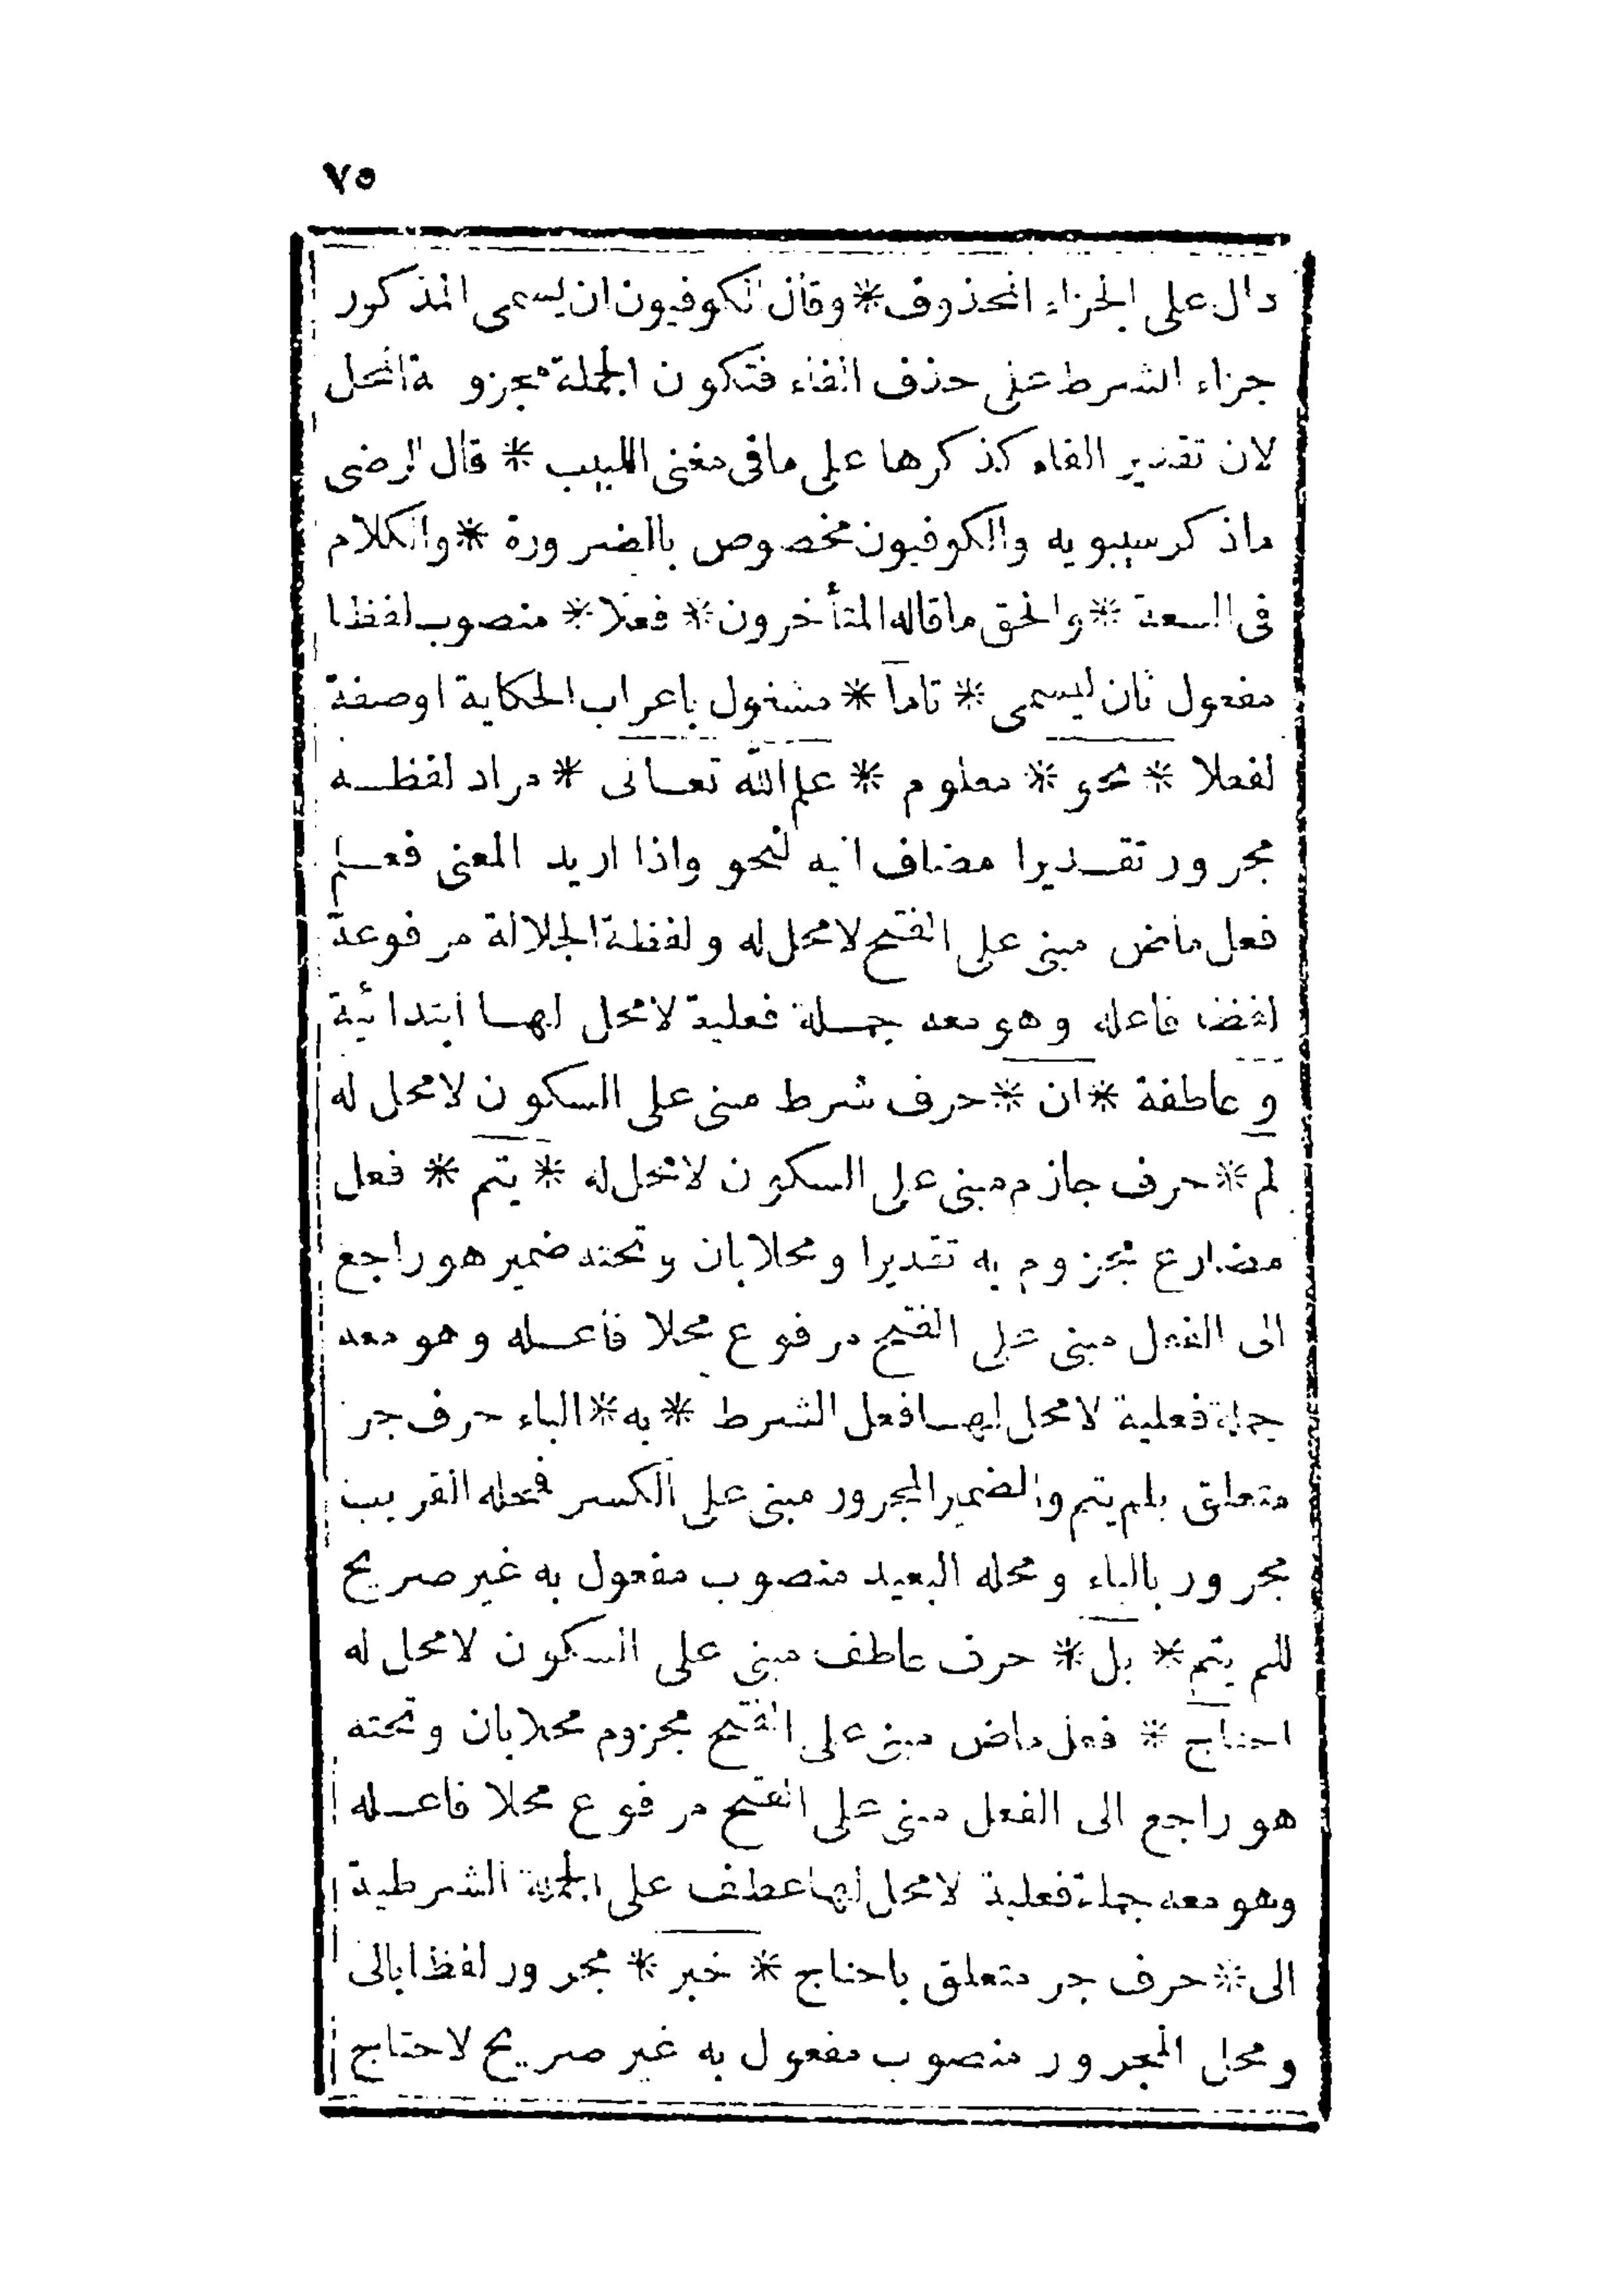 ٧٥
دال على الجزاء المحذوف * وقال الكوفيون ان يسمى المذكور
جزاء الشرط على حذف الفاء فتكون الجملة مجزومة المحل
لان تقدير الفاء كذكرها على مافى مغنى اللبيب * قال الرضى
ماذكر سيبويه والكوفيون مخصوص بالضرورة * والكلام
فى السعة * والحق ماقاله المتأخرون * فعلا * منصوب لفظا
مفعول ثان ليسمى * تاما * مشغول باعراب الحكاية اوصفة
لفعلا * نحو * معلوم * علم الله تعالى * مراد لفظه
مجرور تقديرا مضاف اليه لنحو واذا اريد المعنى فعلم
فعل ماض مبنى على الفتح لامحل له ولفظة الجلالة مرفوعة
لفظا فاعله وهو معه جملة فعلية لامحل لها ابتدائية
و عاطفة * ان * حرف شرط مبنى على السكون لامحل له
لم * حرف جازم مبنى على السكون لامحل له * يتم * فعل
مضارع مجزوم به تقديرا ومحلا بان وتحته ضمير هو راجع
الى الفعل مبنى على الفتح مرفوع محلا فاعله وهو معه
جملة فعلية لامحل لها فعل الشرط * به * الباء حرف جر
متعلق بلم يتم والضمير المجرور مبنى على الكسر فمحله القريب
مجرور بالباء ومحله البعيد منصوب مفعول به غير صريح
للم يتم * بل * حرف عاطف مبنى على السكون لامحل له
احتاج * فعل ماض مبنى على الفتح مجزوم محلا بان وتحته
هو راجع الى الفعل مبنى على الفتح مرفوع محلا فاعله
وهو معه جملة فعلية لامحل لها عطف على الجملة الشرطية
الى * حرف جر متعلق باحتاج * خبر * مجرور لفظا بالى
ومحل المجرور منصوب مفعول به غير صريح لاحتاج